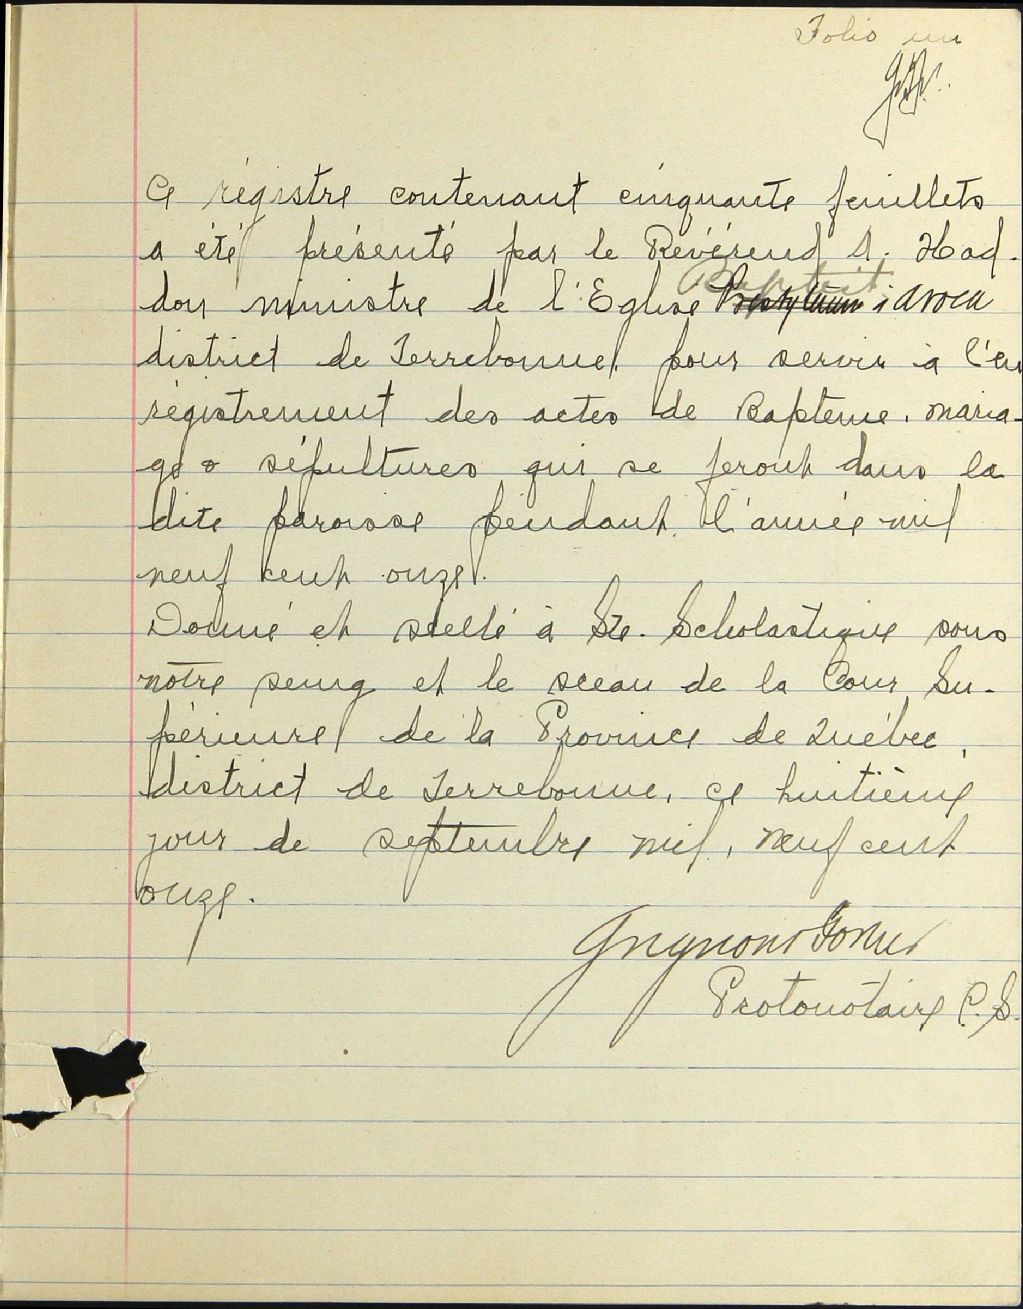 Folio un
Ce régistre contenant cinquante feuillets
a été présenté par le Révérend A. Had-
Baptist
don ministre de l'Eglise à Avoca
district de Terrebonne, pour servir à l'en
régistrement des actes de Bapteme, maria-
ge & sépultures qui se feront dans la
dite paroisse pendant l'année mil
neuf cent onze.
Donné et scellé à Ste. Scholastique sous
notre seing et le sceau de la Cour Su-
périeure de la Province de Québec,
district de Terrebonne, ce huitième
jour de septembre mil, neuf cent
onze.
Grignon & Fortier
Protonotaire C. S.